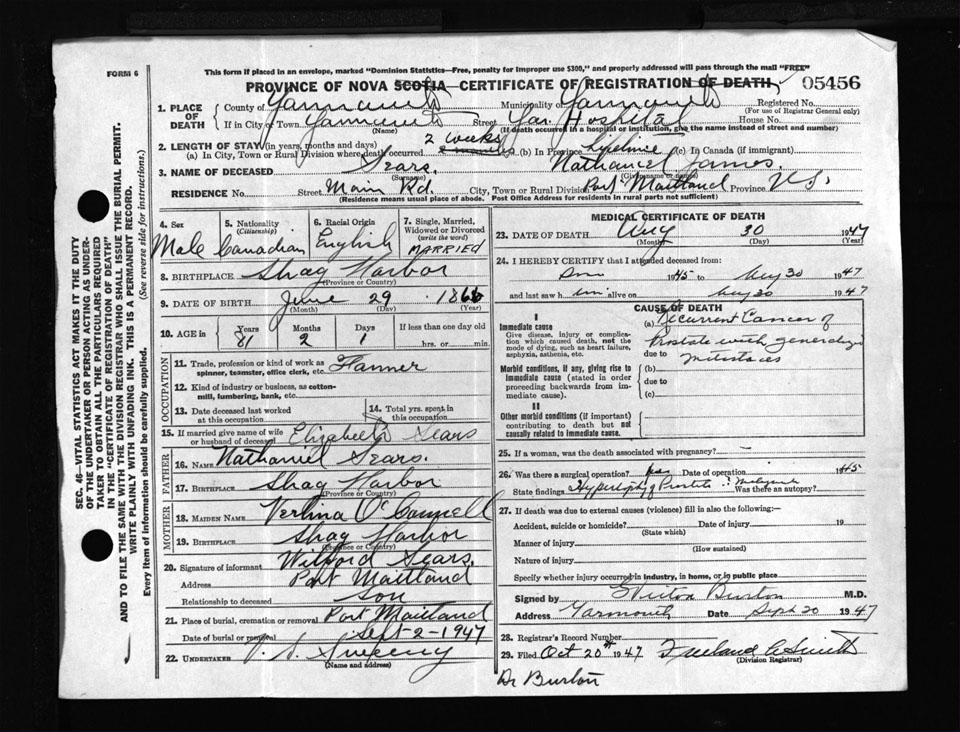 FORM 6
This form if placed in an envelope, marked "Dominion Statistics—Free, penalty for improper use $300," and properly addressed will pass through the mail "FREE"
PROVINCE OF NOVA SCOTIA—CERTIFICATE OF REGISTRATION OF DEATH
05456
SEC. 46—VITAL STATISTICS ACT MAKES IT THE DUTY
OF THE UNDERTAKER OR PERSON ACTING AS UNDER-
TAKER TO OBTAIN ALL THE PARTICULARS REQUIRED
IN THE "CERTIFICATE OF REGISTRATION OF DEATH"
AND TO FILE THE SAME WITH THE DIVISION REGISTRAR WHO SHALL ISSUE THE BURIAL PERMIT.
WRITE PLAINLY WITH UNFADING INK. THIS IS A PERMANENT RECORD.
Every item of information should be carefully supplied. (See reverse side for instructions.)
1. PLACE OF DEATH
County of Yarmouth Municipality of Yarmouth Registered No.
(For use of Registrar General only)
If in City or Town Yarmouth Street Yar. Hospital House No.
(Name) (If death occurred in a hospital or institution, give the name instead of street and number)
2. LENGTH OF STAY (in years, months and days)
(a) In City, Town or Rural Division where death occurred 2 weeks (b) In Province Lifetime (c) In Canada (if immigrant)
3. NAME OF DECEASED Sears. Nathaniel James.
(Surname) (Given name or names)
RESIDENCE No. Street Main Rd. City, Town or Rural Division Port Maitland Province N.S.
(Residence means usual place of abode. Post Office Address for residents in rural parts not sufficient)
4. Sex
Male
5. Nationality
(Citizenship)
Canadian
6. Racial Origin
English
7. Single, Married, Widowed or Divorced
(write the word)
MARRIED
8. BIRTHPLACE Shag Harbor
(Province or Country)
9. DATE OF BIRTH June 29 1866
(Month) (Day) (Year)
10. AGE in Years 81 Months 2 Days 1 If less than one day old
hrs. or min.
OCCUPATION
11. Trade, profession or kind of work as spinner, teamster, office clerk, etc. Farmer
12. Kind of industry or business, as cotton-mill, lumbering, bank, etc.
13. Date deceased last worked at this occupation
14. Total yrs. spent in this occupation
15. If married give name of wife or husband of deceased Elizabeth Sears
FATHER
16. NAME Nathaniel Sears.
17. BIRTHPLACE Shag Harbor
(Province or Country)
MOTHER
18. MAIDEN NAME O'Connell
19. BIRTHPLACE Shag Harbor
(Province or Country)
20. Signature of informant Wilford Sears.
Address Port Maitland
Relationship to deceased Son
21. Place of burial, cremation or removal Port Maitland
Date of burial or removal Sept-2-1947
22. UNDERTAKER Sweeny
(Name and address)
MEDICAL CERTIFICATE OF DEATH
23. DATE OF DEATH Aug 30 1947
(Month) (Day) (Year)
24. I HEREBY CERTIFY that I attended deceased from
1945 to Aug 30 1947
and last saw him alive on Aug 30 1947
CAUSE OF DEATH
I
Immediate cause
Give disease, injury or complication which caused death, not the mode of dying, such as heart failure, asphyxia, asthenia, etc.
(a) Recurrent Cancer of
Prostate with
due to
Morbid conditions, if any, giving rise to immediate cause (stated in order proceeding backwards from immediate cause).
(b)
due to
(c)
II
Other morbid conditions (if important) contributing to death but not causally related to immediate cause.
25. If a woman, was the death associated with pregnancy?
26. Was there a surgical operation? yes Date of operation 1945
State findings of Prostate Was there an autopsy?
27. If death was due to external causes (violence) fill in also the following:—
Accident, suicide or homicide? Date of injury 19
(State which)
Manner of injury
(How sustained)
Nature of injury
Specify whether injury occurred in industry, in home, or in public place
Signed by Burton M.D.
Address Yarmouth Date Sept 20 1947
28. Registrar's Record Number
29. Filed Oct 20th 1947 Smith
(Division Registrar)
Dr Burton